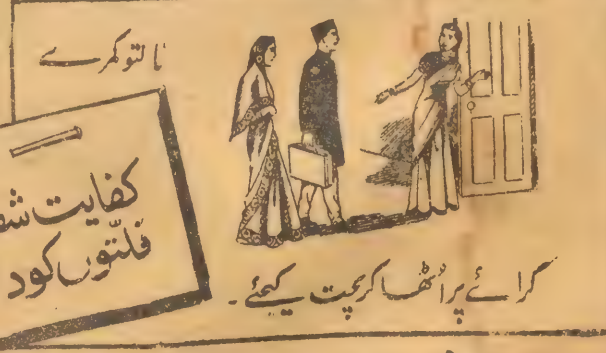 فالتو کمرے
کفایت
قلّتوں کو
کرائے پر اُٹھا کر بچت کیجئے۔